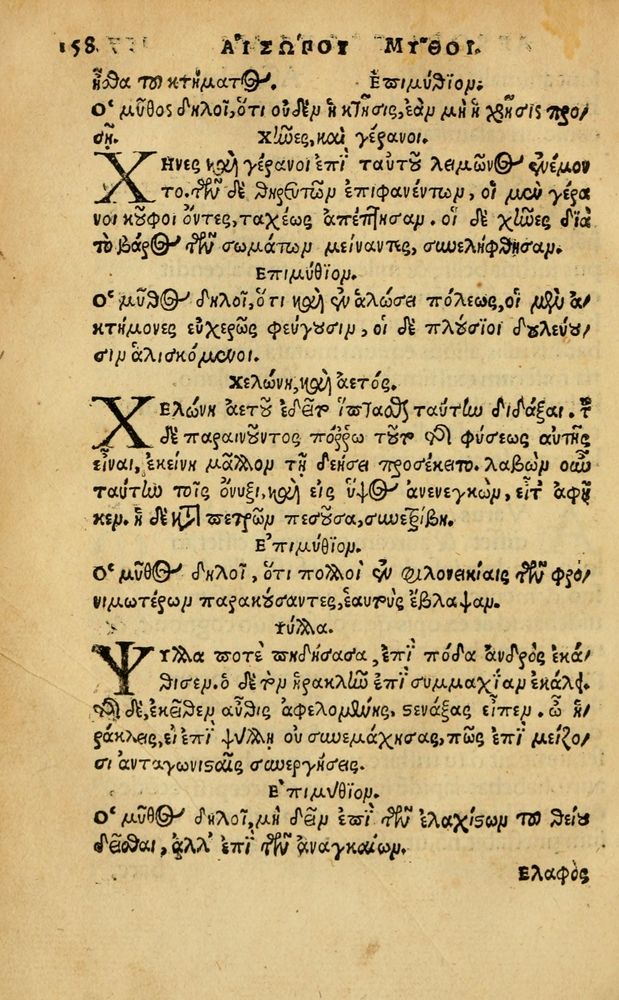 158 ΑΙΣΩΠΟΥ ΜΥΘΟΙ.
ἦσθα τοῦ κτήματος. Ἐπιμύθιον.
Ὁ μῦθος δηλοῖ, ὅτι οὐδὲν ἡ κτῆσις, ἐὰν μὴ ἡ χρῆσις προ-
σῇ. Χῆνες, καὶ γέρανοι.
ΧΗνες καὶ γέρανοι ἐπὶ ταὐτοῦ λειμῶνος ἐνέμον
το. τῶν δὲ θηρευτῶν ἐπιφανέντων, οἱ μὲν γέρα
νοι κοῦφοι ὄντες, ταχέως ἀπέπτησαν. οἱ δὲ χῆνες διὰ
τὸ βάρος τῶν σωμάτων μείναντες, συνελήφθησαν.
Ἐπιμύθιον.
Ὁ μῦθος δηλοῖ, ὅτι καὶ ἐν ἁλώσει πόλεως, οἱ μὲν ἀ-
κτήμονες εὐχερῶς φεύγουσιν, οἱ δὲ πλούσιοι δουλεύου-
σιν ἁλισκόμενοι.
Χελώνη, καὶ ἀετός.
ΧΕλώνη ἀετοῦ ἐδεῖτο ἵπτασθαι ταύτην διδάξαι. τοῦ
δὲ παραινοῦντος πόῤῥω τοῦτο τῆς φύσεως αὐτῆς
εἶναι, ἐκείνη μᾶλλον τῇ δεήσει προσέκειτο. λαβὼν οὖν
ταύτην τοῖς ὄνυξι, καὶ εἰς ὕψος ἀνενεγκὼν, εἶτ' ἀφῆ
κεν. ἡ δὲ κατὰ πετρῶν πεσοῦσα, συνετρίβη.
Ἐπιμύθιον.
Ὁ μῦθος δηλοῖ, ὅτι πολλοὶ ἐν φιλονεικίαις τῶν φρο-
νιμωτέρων παρακούσαντες, ἑαυτοὺς ἔβλαψαν.
Ψύλλα.
ΨΥλλα ποτὲ πηδήσασα, ἐπὶ πόδα ἀνδρὸς ἐκά-
θισεν. ὁ δὲ τὸν ἡρακλῆν ἐπὶ συμμαχίαν ἐκάλει.
τῆς δὲ, ἐκεῖθεν αὖθις ἀφελομένης, στενάξας εἶπεν. ὦ ἡ-
ράκλεις, εἰ ἐπὶ ψύλλῃ οὐ συνεμάχησας, πῶς ἐπὶ μείζο-
σι ἀνταγωνισταῖς συνεργήσεις.
Ἐπιμύθιον.
Ὁ μῦθος δηλοῖ, μὴ δεῖν ἐπὶ τῶν ἐλαχίστων τοῦ θείου
δεῖσθαι, ἀλλ' ἐπὶ τῶν ἀναγκαίων.
Ελαφὸς